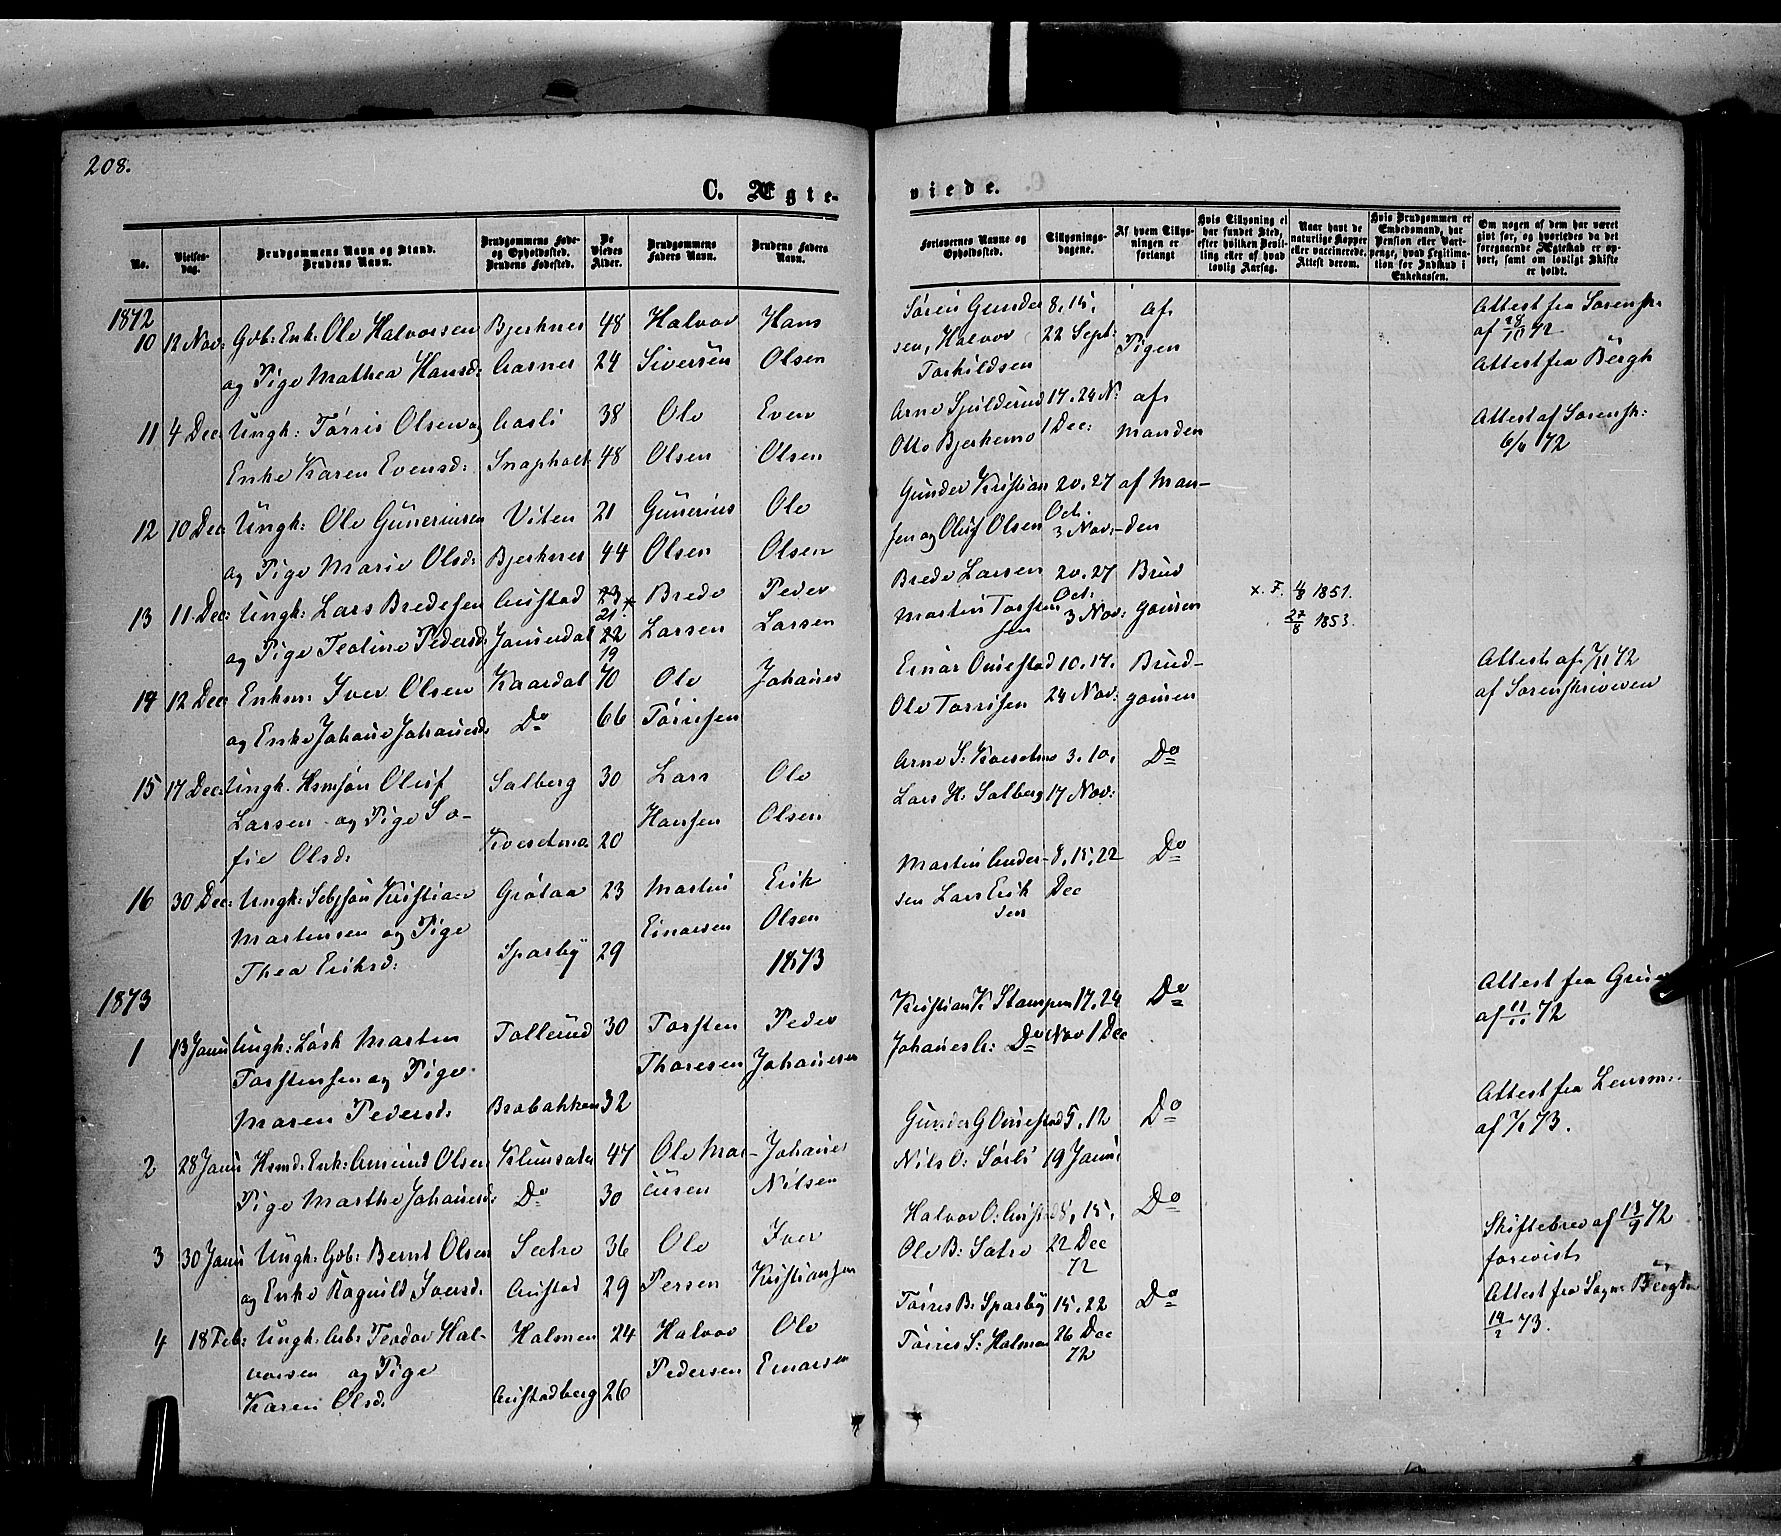 208.
C. Ægte-
viede.
No.
Vielses-
dag.
Brudgommens Navn og Stand.
Brudens Navn.
Brudgommens Føde-
og Opholdssted.
Brudens Fødested.
De
Viedes
Alder.
Brudgommens
Faders Navn.
Brudens Faders
Navn.
Forlovernes Navne og
Opholdssted.
Tillysnings-
dagene.
Af hvem Tillys-
ningen er
forlangt
Hvis Tillysning ei
har fundet Sted,
efter hvilken Bevil-
ling eller af hvad
lovlig Aarsag.
Naar havt de
naturlige Kopper
eller vaccinerede.
Attest derom.
Hvis Brudgommen er
Embedsmand, har
Pension eller Vart-
penge, hvad Legitima-
tion for Indskud i
Enkekassen.
Om nogen af dem har været
gift før, og hvorledes da det
foregaaende Ægteskab er op-
hørt, samt om lovligt Skifte
er holdt.
1872
10 12 Nov: Gbb: Enk: Ole Halvorsen Bjerknes 48 Halvor Hans
og Pige Mathea Hansd: Aasnes 24 Siversen Olsen
Søren Gunder 8, 15, af
sen, Halvor 22 Sept: Pigen
Torkildsen
Attest fra Sorenskr.
af 72
Attest fra Bergh
11 4 Dec Ungk: Tørris Olsen og Aasli 38 Ole Even
Enke Karen Evensd: Snapholt 48 Olsen Olsen
Arne Skulderud 17. 24 N: af
Otto Bjerkemo 1 Dec: Manden
Attest af Sorenskr.
72
12 10 Dec Ungk: Ole Guneriusen Viten 21 Gunerius Ole
og Pige Marie Olsd: Bjerknes 44 Olsen Olsen
Gunder Kristian 20, 27 af Man-
sen og Oluf Olsen Oct. 3 Nov: den
13 11 Dec: Ungk: Lars Bredesen Austad 23 21 Brede Peder
og Pige Teoline Pedersd: 22 19 Larsen Larsen
Brede Larsen 20, 27 Brud
Martin Torsten Oct: 3 Nov: gomen
sen
x. F. 1851.
27/8 1853.
14 12 Dec Enkm: Iver Olsen Kaardal 70 Ole Johanes
og Enke Johane Johanesd: Do 66 Tørrisen
Einar Omestad 10. 17. Brud-
Ole Torrisen 24 Nov: gomen
Attest af 72
af Sorenskriveren
15 17 Dec: Ungk. Hsmsøn Oluf Salberg 30 Lars Ole
Larsen og Pige So- Hansen Olsen
fie Olsd: Kvesetmo 20
Arne S: Kvesetmo 3, 10, Do
Lars H: Salberg 17 Nov:
16 30 Dec: Ungk: Selvsøn Kristian Grøtaa 23 Martin Erik
Martinsen og Pige Einarsen Olsen
Thea Eriksd: Sparby 29
Martin Ander- 8, 15, 22 Do
sen Lars Erik Dec
sen
1873
1873
1 13 Janu Ungk: Løsk Marten Tollerud 30 Torsten Peder
Torstensen og Pige Thoresen Johanesen
Maren Pedersd: Brobakken 32
Kristian K Stampen 17. 24 Do
Johanes A: Do Nov 1 Dec
Attest fra Grue
af 11/11 72
2 28 Janu Hsmd: Enk: Amund Olsen Klemsater 47 Ole Mar- Johanes
Pige Marthe Johanesd: Do 30 Nilsen
Gunder G Omestad 5, 12 Do
Nils O: Sørli 19 Janu
Attest fra Lensm:
af 73.
3 30 Janu Ungk: Gbb: Bernt Olsen Sætre 36 Ole Iver
og Enke Ragnild Iversd. Austad 29 Persen Kristiansen
Halvor O: Austad 8, 15, Do
Ole B: Sætre 22 Dec
72
Skiftebrev af 13/9 72
forevist
4 18 Feb: Ungk: Arb: Teodor Hal- Holmen 24 Halvor Ole
vorsen og Pige Pedersen Einarsen
Karen Olsd. Austadberg 26
Tørres B: Sparby 15, 22 Do
Tørres S: Holmen 26 Dec
72
Attest fra Sogn: Bergh
14/2 73.